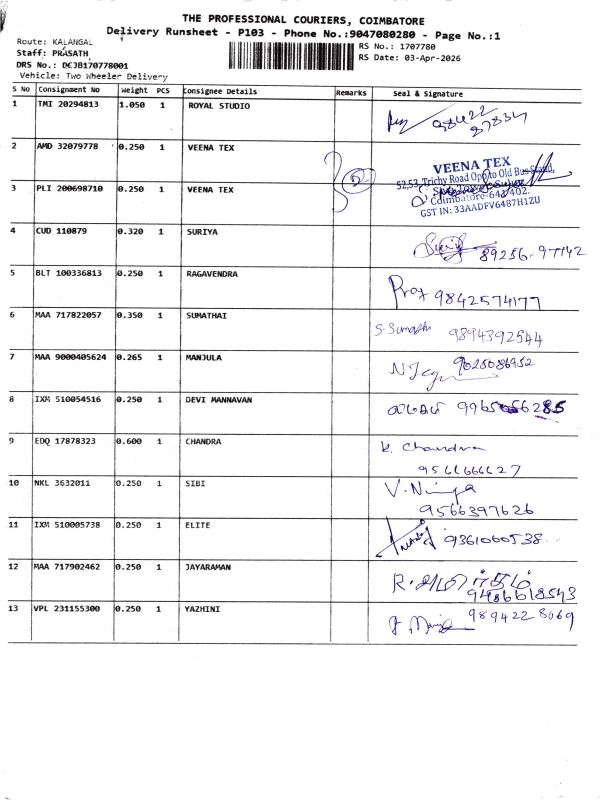 THE PROFESSIONAL COURIERS, COIMBATORE
Delivery Runsheet - P103 - Phone No.:9047080280 - Page No.:1
Route: KALANGAL
Staff: PRASATH
DRS No.: DCJB170778001
Vehicle: Two Wheeler Delivery
RS No.: 1707780
RS Date: 03-Apr-2026
S No Consignment No Weight PCS Consignee Details Remarks Seal & Signature
1 TMI 20294813 1.050 1 ROYAL STUDIO
98422
87834
2 AMD 32079778 0.250 1 VEENA TEX
VEENA TEX
52,53, Trichy Road Opp to Old Bus Stand,
3 PLI 200698710 0.250 1 VEENA TEX 5
Coimbatore-641402.
GST IN: 33AADFV6487H1ZU
4 CUD 110879 0.320 1 SURIYA
89256-97142
5 BLT 100336813 0.250 1 RAGAVENDRA
9842574177
6 MAA 717822057 0.350 1 SUMATHAI
S. Sumathi 9894392544
7 MAA 9000405624 0.265 1 MANJULA
9025086952
8 IXM 510054516 0.250 1 DEVI MANNAVAN
9 EDQ 17878323 0.600 1 CHANDRA
K. Chandra
9566666627
10 NKL 3632011 0.250 1 SIBI
9566397626
11 IXM 510005738 0.250 1 ELITE
9361060538
12 MAA 717902462 0.250 1 JAYARAMAN
9486618543
13 VPL 231155300 0.250 1 YAZHINI
9894228069